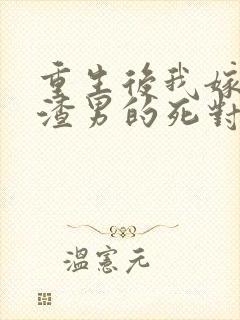 重生後我嫁
渣男的死對
溫憲元